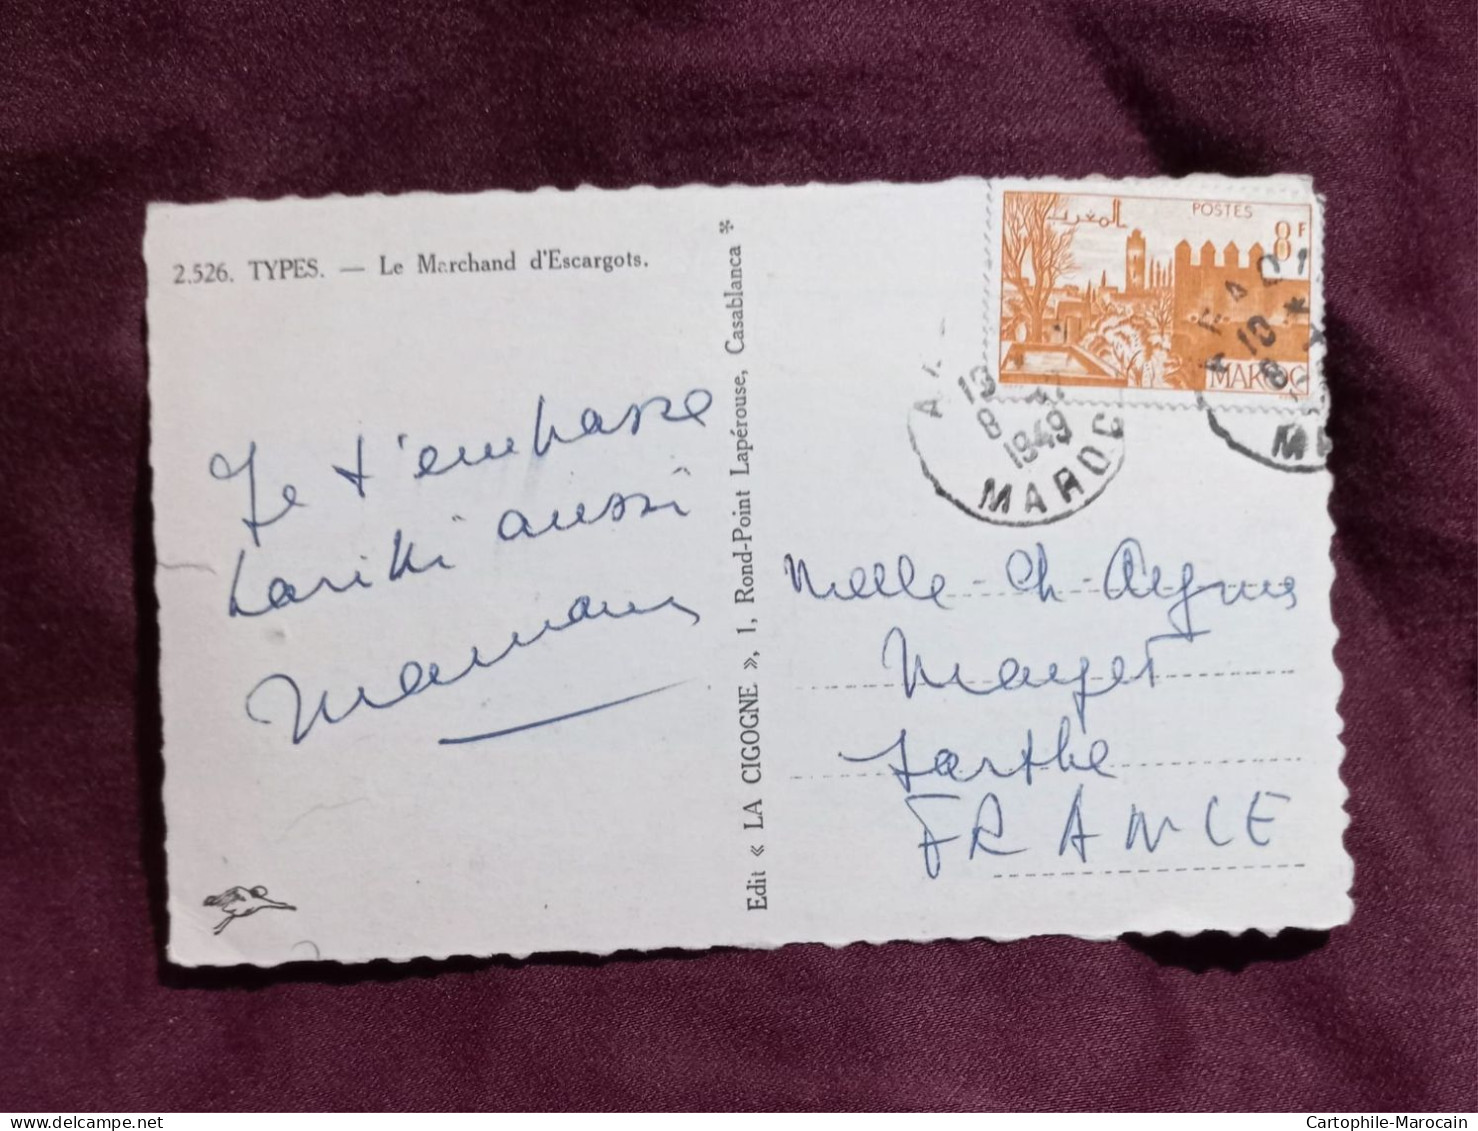 2.526. TYPES. — Le Marchand d'Escargots.
Je t'embrasse
aussi
Maman
Edit « LA CIGOGNE », 1, Rond-Point Lapérouse, Casablanca *
المغرب
POSTES
8F
MAROC
10
8
1949
MAROC
10 *
8
Melle Ch
Mayet
Sarthe
FRANCE
Cartophile-Marocain